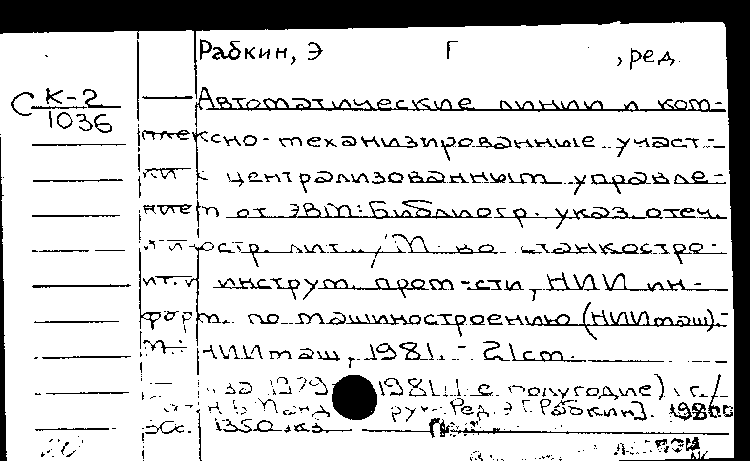 Рабкин, Э Г , ред.
С К-2
1036
Автоматические линии и ком-
плексно-механизированные участ-
ки с централизованным управле-
нием от ЭВМ: Библиогр. указ. отеч.
и иностр. лит. /М-во станкостро-
ит. и инструм. пром-сти, НИИ ин-
форм. по машиностроению (НИИмаш).-
М.: НИИмаш, 1981. - 21 см.
за 1979 - 1981 (I-е полугодие)
рук. Ред. Э. Г. Рабкин].
30с. 1350 экз.